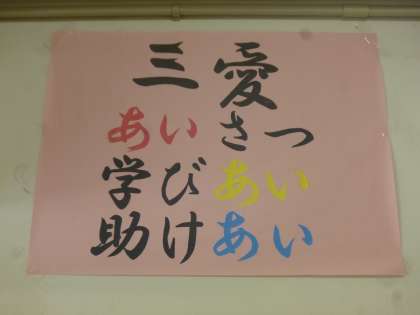 三愛
あいさつ
学びあい
助けあい